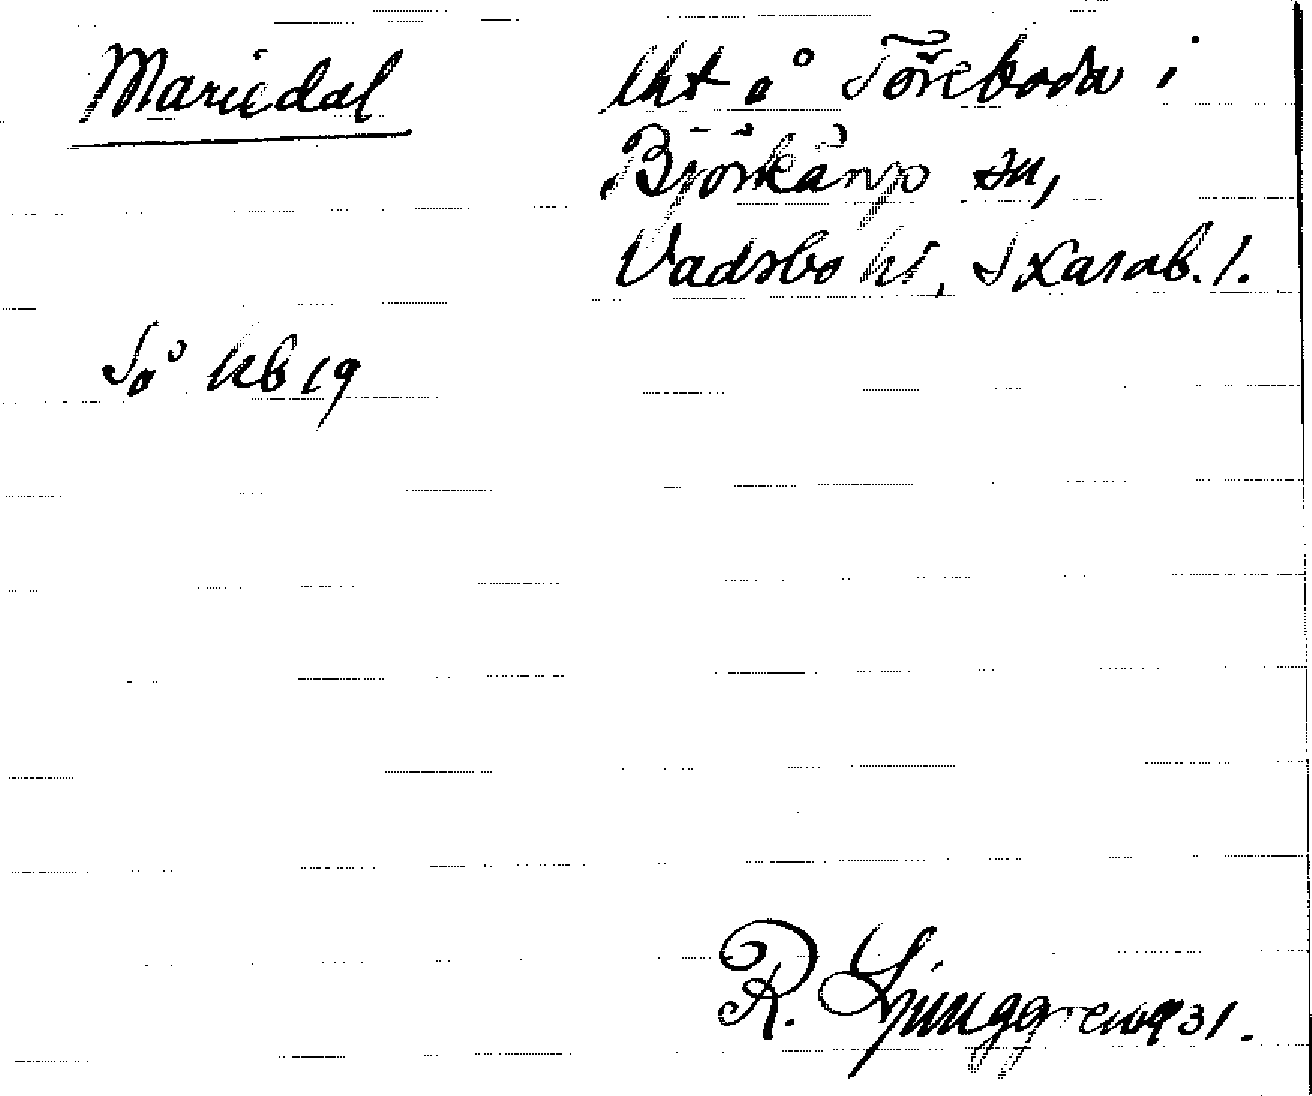 Mariedal
lht å Töreboda i
Björkängs sn,
Vadsbo hd, Skarab. l.
Så kb 19
R. Ljunggren 1931.